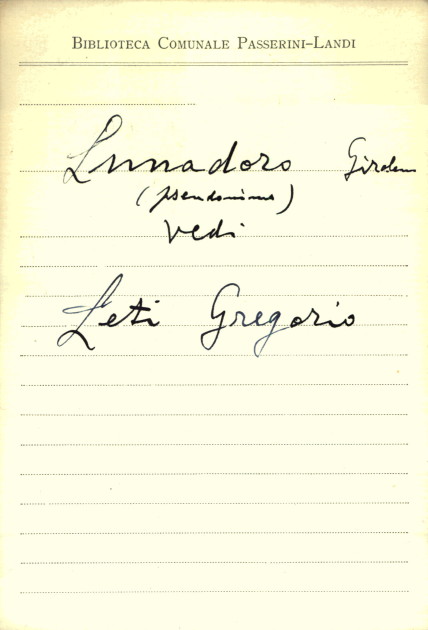 BIBLIOTECA COMUNALE PASSERINI-LANDI
Lunadoro Girolamo
(pseudonimo)
vedi
Leti Gregorio